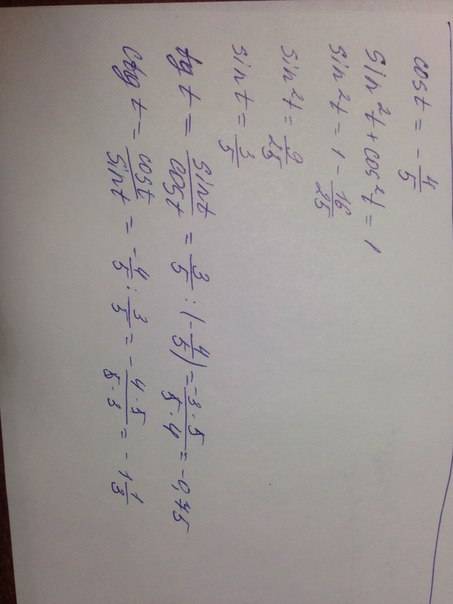 cos t = - 4/5
sin²t + cos²t = 1
sin²t = 1 - 16/25
sin²t = 9/25
sin t = 3/5
tg t = sin t/cos t = 3/5 : (-4/5) = -3·5/5·4 = -0,75
ctg t = cos t/sin t = -4/5 : 3/5 = - 4·5/5·3 = -1 1/3